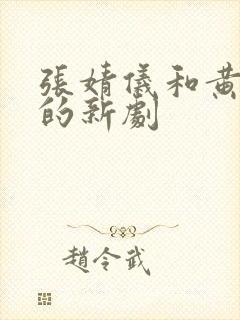 張婧儀和黃
的新劇
趙令武